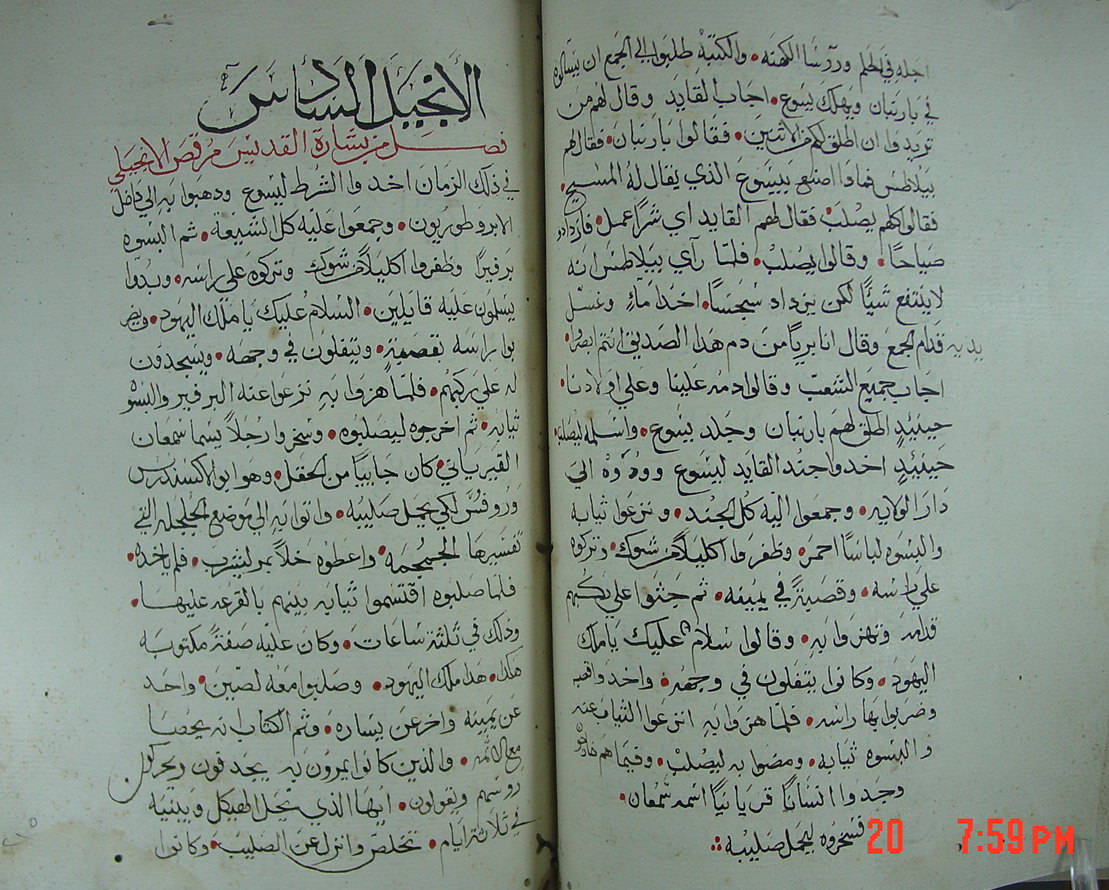 اجله في الحلم وروسا الكهنه • والكتبة طلبوا الي الجمع ان يسالوا
في باربان ويهلك يسوع • اجاب القايد وقال لهم من
تريدوا ان اطلق لكم من الاثنين • فقالوا باربان • فقال لهم
بيلاطس فماذا اصنع بيسوع الذي يقال له المسيح •
فقالوا كلهم يصلب • فقال لهم القايد اي شرا عمل • فازدادو
صياحا • وقالوا يصلب • فلما رآي بيلاطس انه
لا ينتفع شيا لكن يزداد سجسا • اخد ماء وغسل
يديه قدام الجمع وقال انا بريا من دم هدا الصديق انتم ابصروا •
اجاب جميع الشعب وقالوا دمه علينا وعلي اولادنا •
حينيد اطلق لهم باربان وجلد يسوع • واسلمه ليصلب •
حينيد اخدوا جند القايد ليسوع وودوه الي
دار الولايه • وجمعوا اليه كل الجند • ونزعوا ثيابه
والبسوه لباسا احمر • وظفروا اكليلا من شوك • وتركوه
علي راسه • وقصبة في يمينه • ثم جثوا علي ركبهم
قدامه وتهزوا به • وقالوا سلام عليك يا ملك
اليهود • وكانوا يتفلون في وجهه • واخدوا قصبه
وضربوا بها راسه • فلما هزوا به انزعوا الثياب عنه
والبسوه ثيابه • ومضوا به ليصلب • وفيما هم خارجو
وجدوا انسانا قريانيا اسمه شمعان •
فسخروه ليحمل صليبه
الانجيل السادس
فصل من بشارة القديس مرقص الانجيلي
في ذلك الزمان اخدوا الشرط ليسوع ودهبوا به الي داخل
الابروطوريون • وجمعوا عليه كل الشيعة • ثم البسوه
برفيرا وظفروا اكليلا من شوك وتركوه علي راسه • وبدوا
يسلمون عليه قايلين • السلام عليك يا ملك اليهود • ويضر
بوا راسه بقصبة • ويتفلون في وجهه • ويسجدون
له علي ركبهم • فلما هزوا به نزعوا عنه البرفير والبسوه
ثيابه • ثم اخرجوه ليصلبوه • وسخروا رجلا يسما سمعان
القيرياني • كان جاييا من الحقل • وهو ابو الاكسندرس
وروفس لكي يحمل صليبه • واتوا به الي موضع الجلجله التي
تفسيرها الجمجمه • واعطوه خلا بمر ليشرب • فلم ياخده •
فلما صلبوه اقتسموا ثيابه بينهم بالقرعه عليها •
ودلك في ثلثة ساعات • وكان عليه صفة مكتوبه
هكدا • هدا ملك اليهود • وصلبوا معه لصين • واحد
عن يمينه واخر عن يساره • وتم الكتاب انه يحصا
مع الاثمه • والدين كانوا يمرون به يجدفون ويحركون
روسهم ويقولون • ايها الذي يحل الهيكل ويبنيه
في ثلاثة ايام • تخلص وانزل عن الصليب • وكانوا
20 7:59 PM